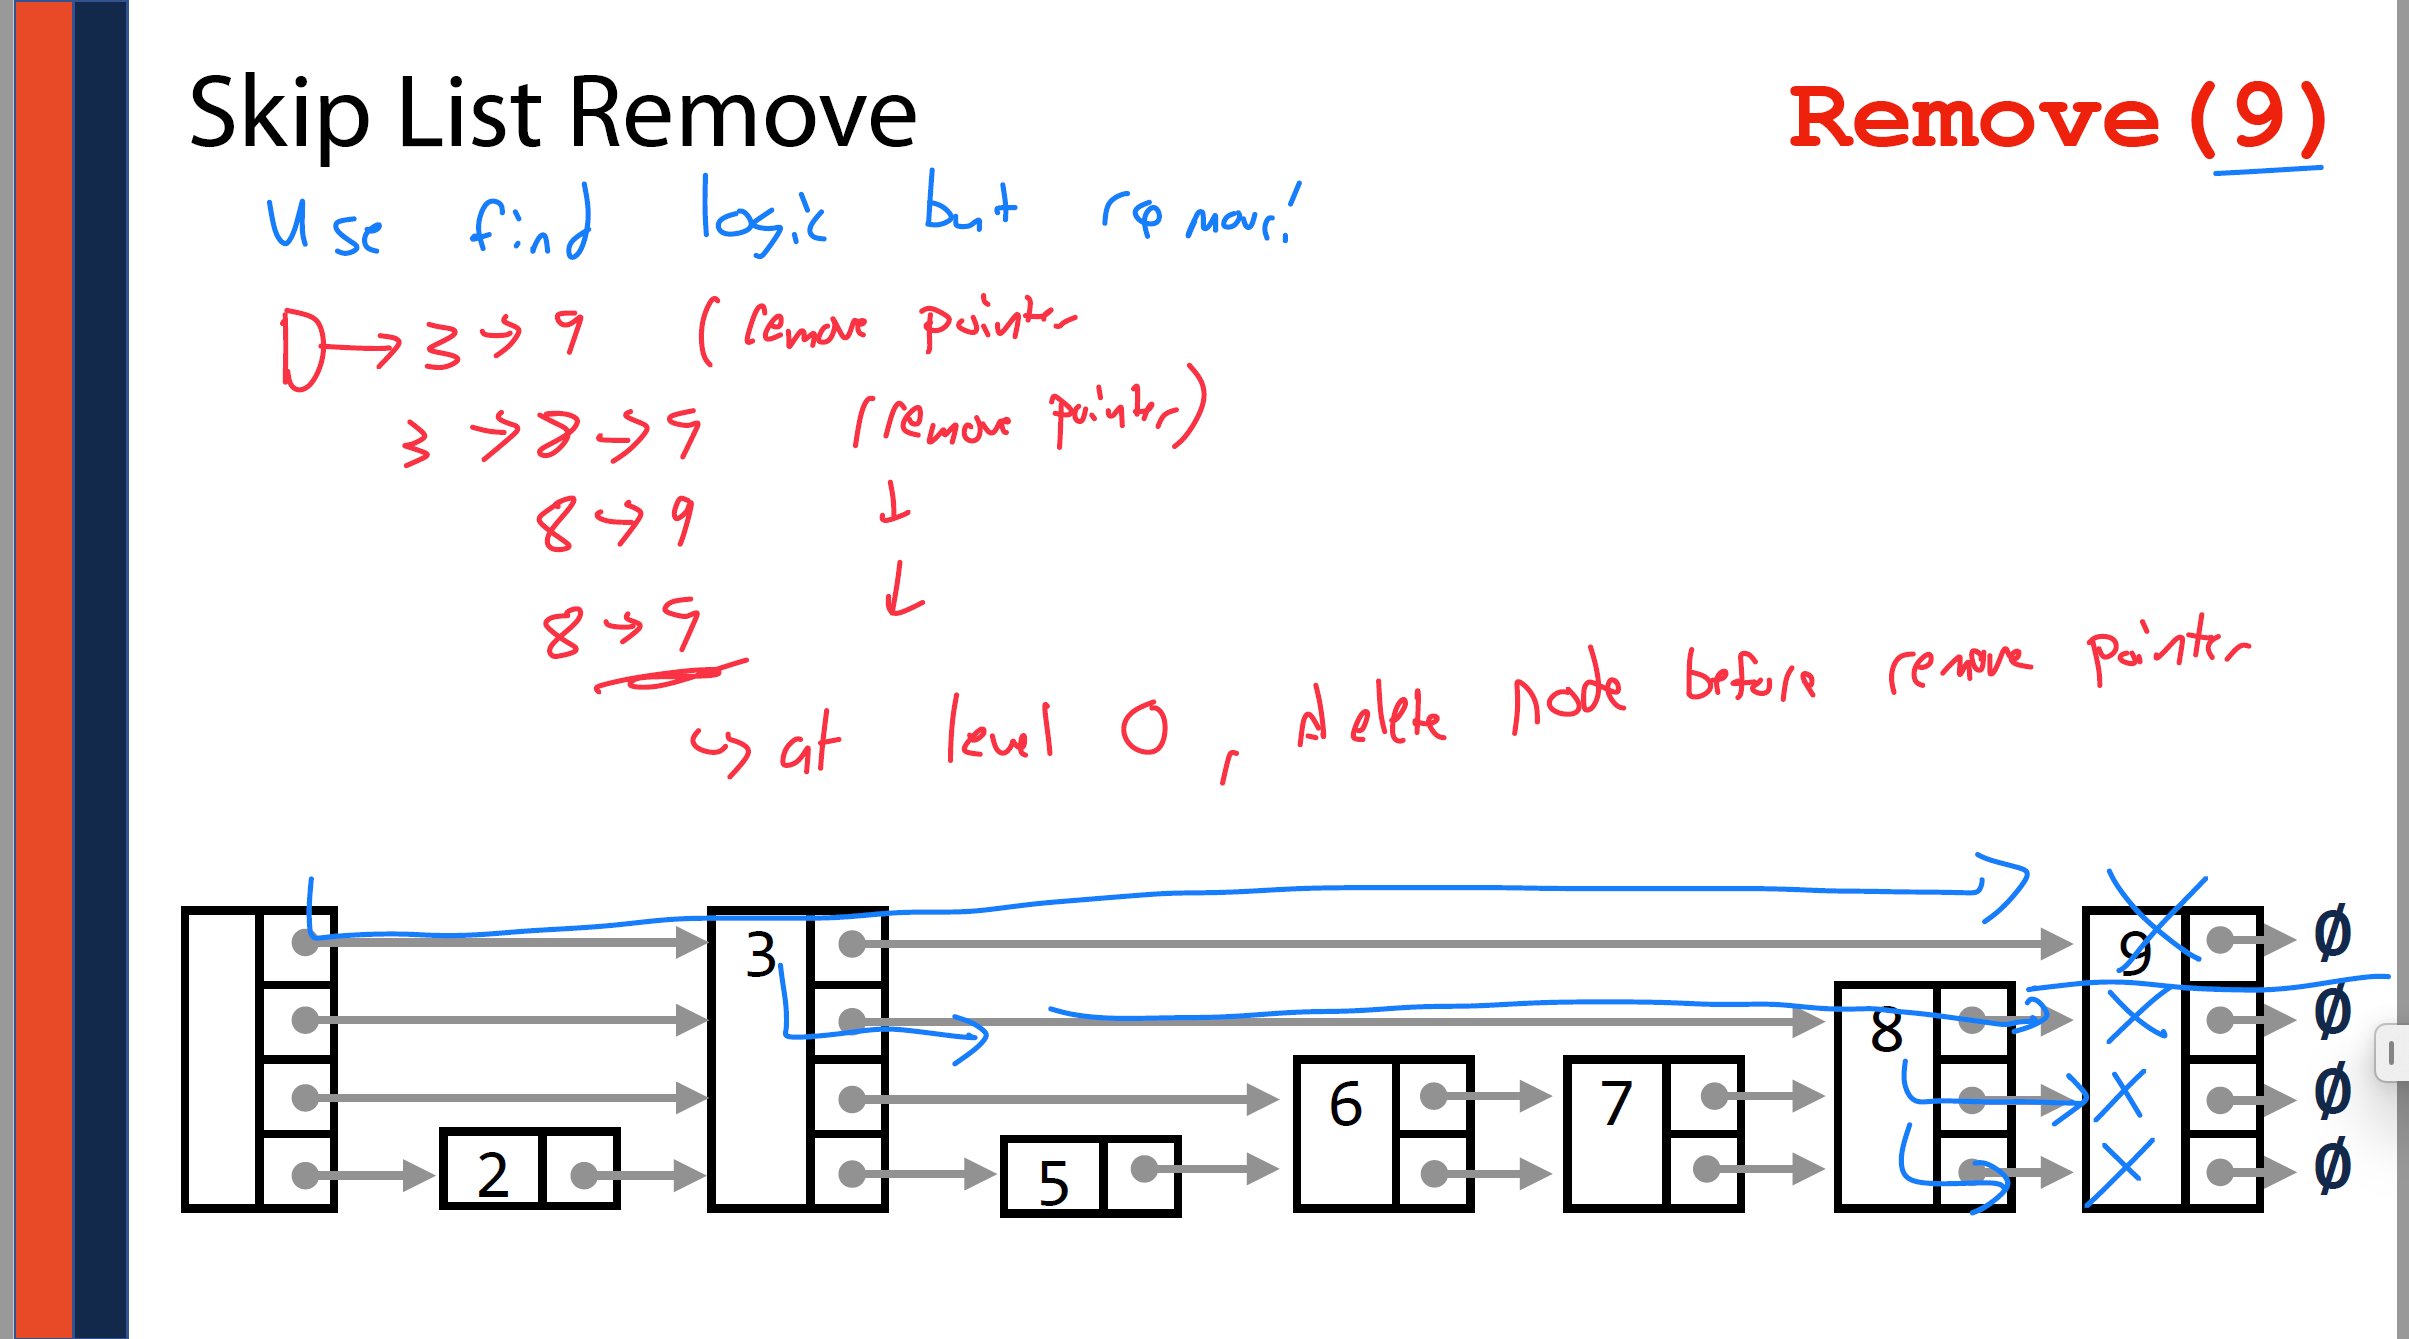 Skip List Remove
Remove(9)
Use find logic but remove!
D → 3 → 9 (remove pointer
3 → 8 → 9 (remove pointer)
8 → 9 ↓
8 → 9 ↓
↪ at level 0, delete node before remove pointer
3 9 Ø
8 Ø
6 7 Ø
2 5 Ø